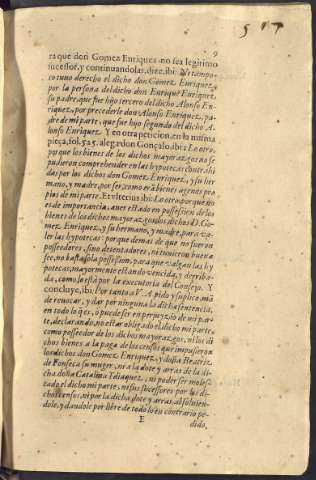 517
9
ra que don Gomez Enriquez no sea legitimo
sucessor, y continuandolas, dize, ibi: Ni tampo-
co tuuo derecho el dicho don Gomez Enriquez,
por la persona del dicho don Enrique Enriquez,
su padre, que fue hijo tercero del dicho Alonso En-
riquez, por precederle don Alonso Enriquez, pa-
dre de mi parte, que fue hijo segundo del dicho A-
lonso Enriquez. Y en otra peticion, en la misma
pieça, fol. 525. alega don Gonçalo ibi: Lo otro,
porque los bienes de los dichos mayorazgos no se
pudieron comprehender en las hypotecas contrahi-
das por los dichos don Gomez Enriquez, y su her-
mano, y madre, por ser, como erã bienes agenos pro
pios de mi parte. Et vlterius ibi: Lo otro, porque no
es de importancia, auer estado en possession de los
bienes de los dichos mayorazgos los dichos D. Go-
mez Enriquez, y su hermano, y madre, para va-
ler las hypotecas: porque demas de que no fueron
posseedores, sino detentadores, ni tuuieron buena
fee, no basta sola possession, para que valgan las hy
potecas, mayormente estando vencida, y derriba-
da, como lo està por la executoria del Consejo. Y
concluye, ibi: Por tanto a V. A. pido y suplico, mã
de reuocar, y dar por ninguna la dicha sentencia,
en todo lo que es, o puede ser en perjuyzio de mi par-
te, declarando, no estar obligado el dicho mi parte,
como posseedor de los dichos mayorazgos, ni los di-
chos bienes a la paga de los censos que impusieron
los dichos don Gomez Enriquez, y doña Beatriz
de Fonseca su muger, ni a la dote y arras de la di-
cha doña Catalina Idiaquez, ni poder ser moles-
tado el dicho mi parte, ni sus sucessores por los di-
chos censos, ni por la dicha dote y arras, absoluien-
dole, y dandole por libre de todo lo en contrario pe-
E
dido,